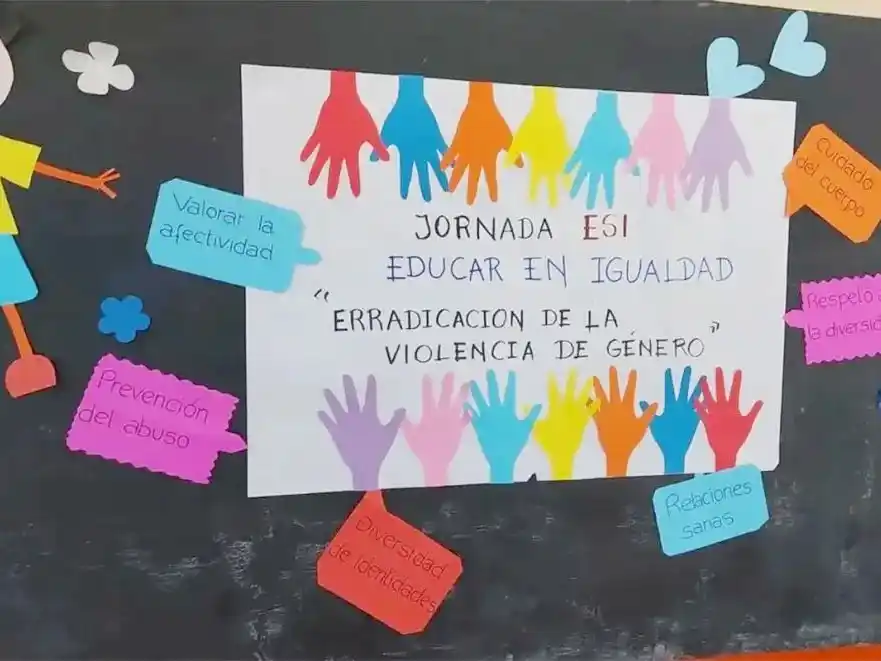 JORNADA ESI
EDUCAR EN IGUALDAD
"ERRADICACION DE LA
VIOLENCIA DE GÉNERO"
Valorar la
afectividad
Prevención
del abuso
Diversidad
de identidades
Relaciones
sanas
Cuidado
del cuerpo
Respeto
la